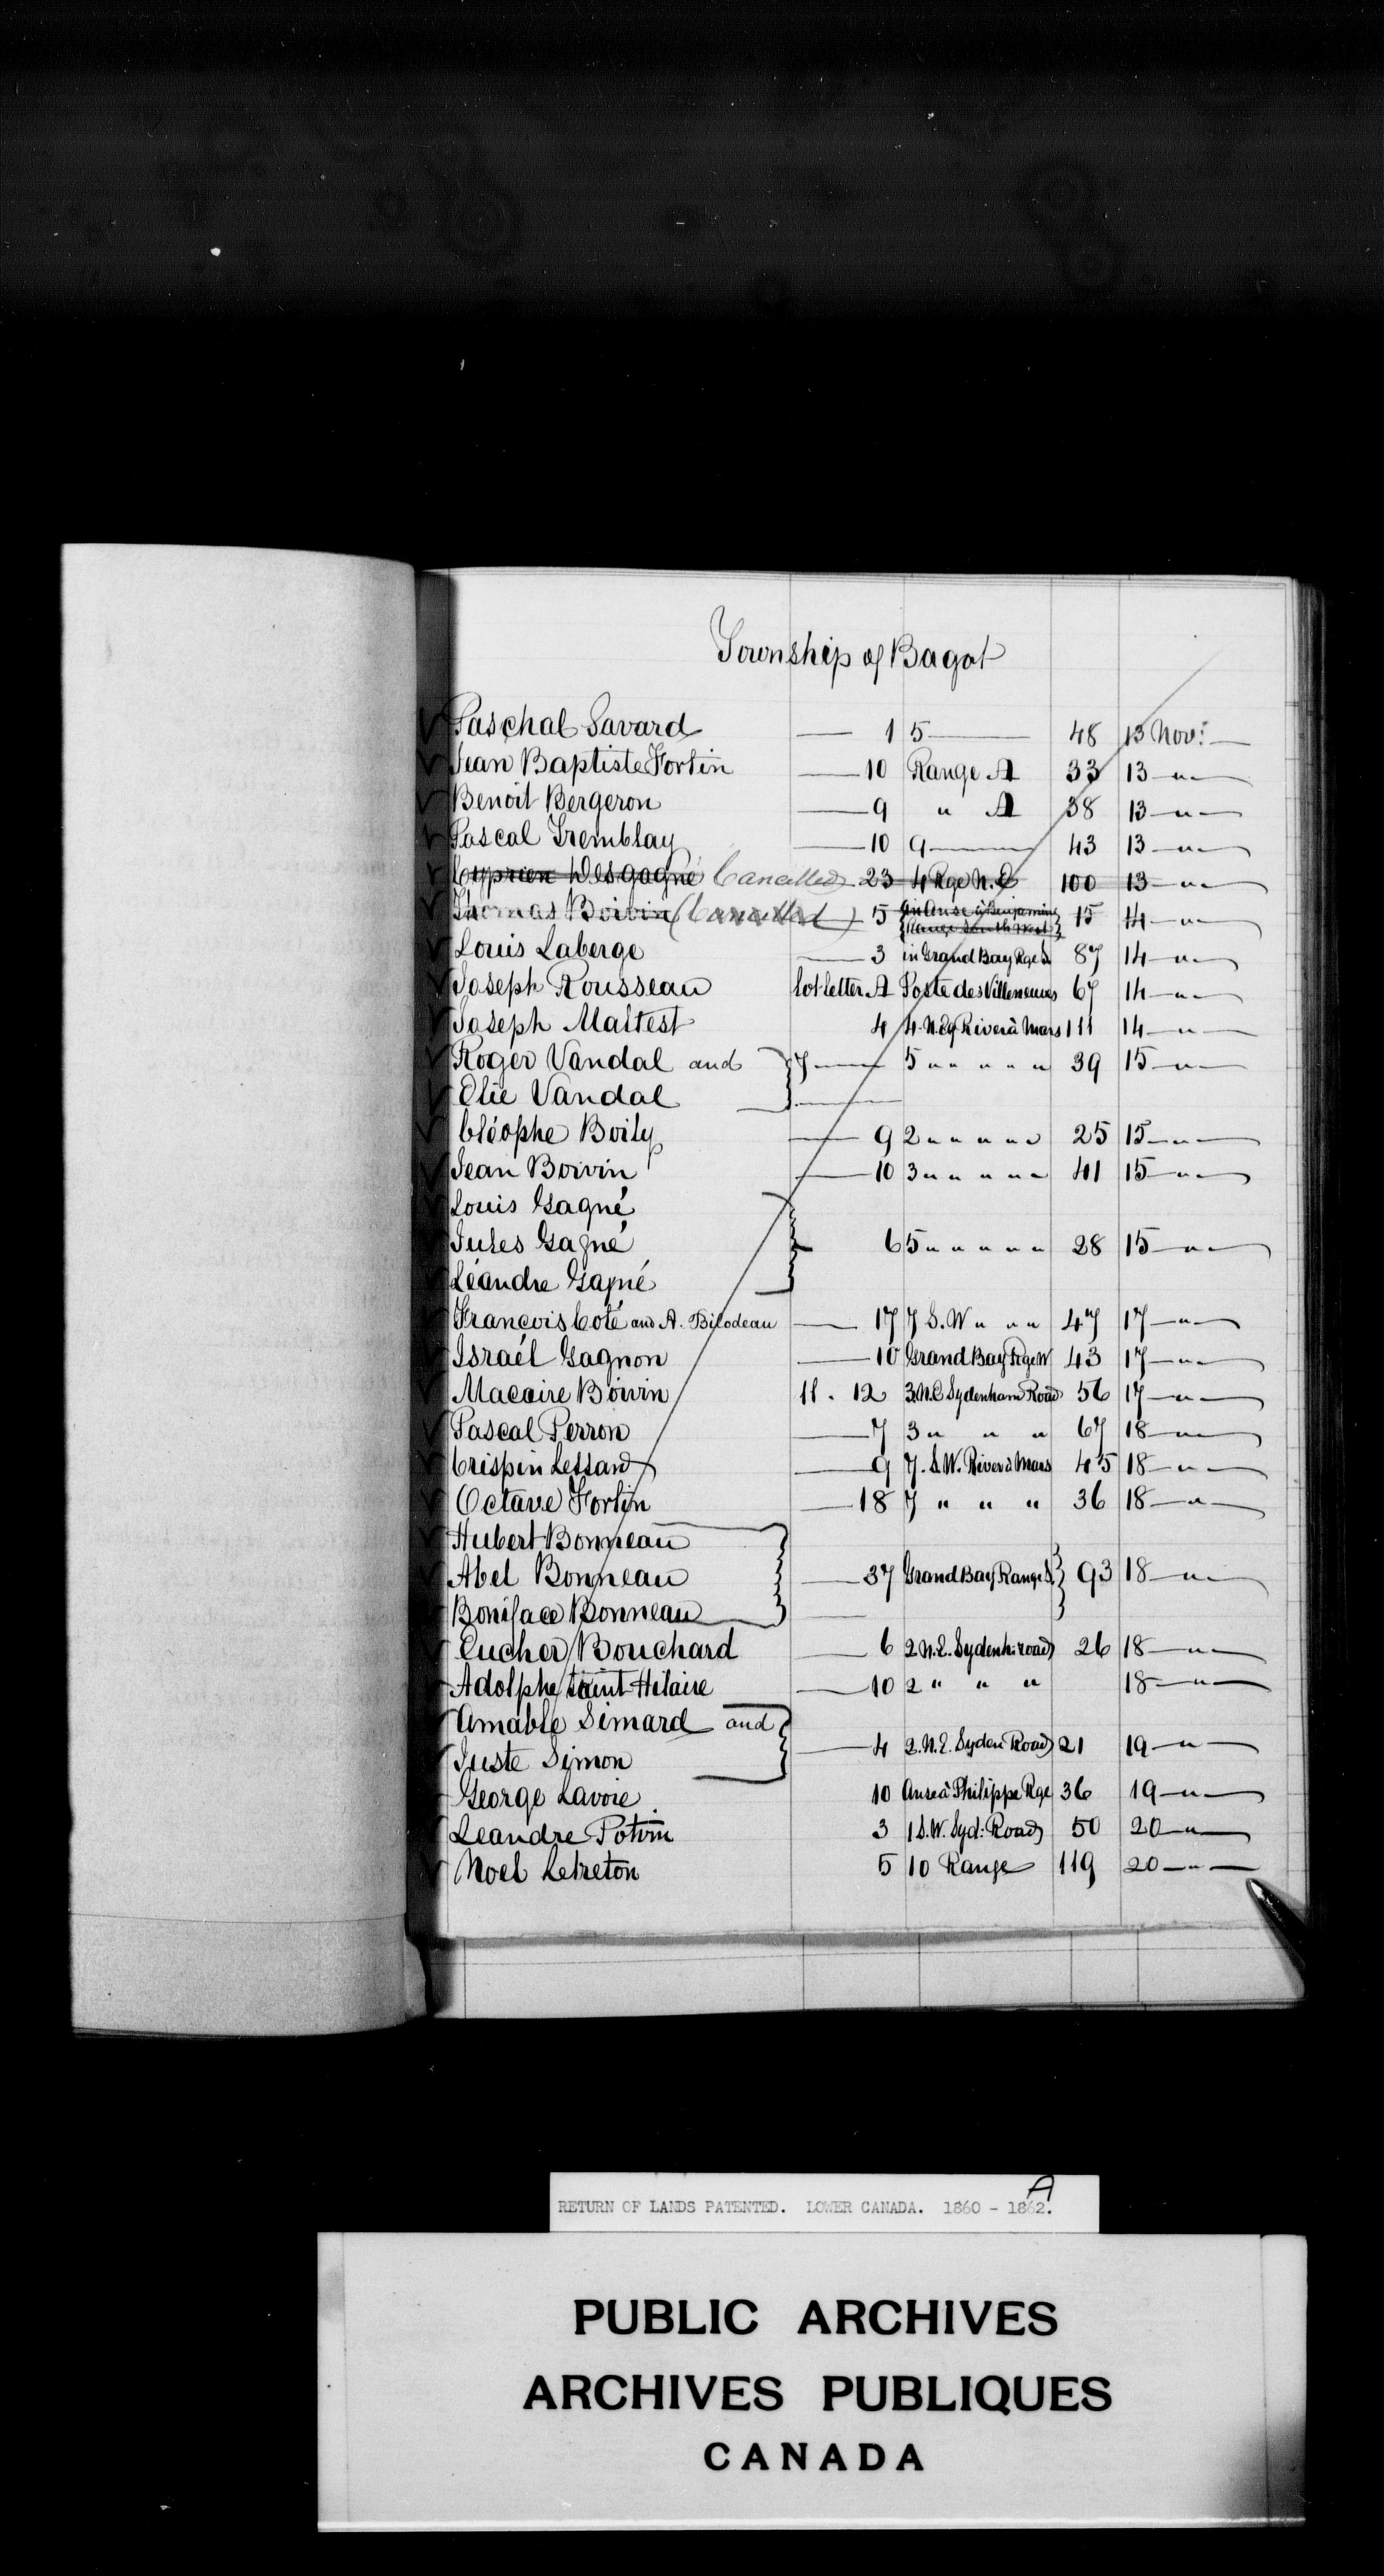 Township of Bagot
Paschal Savard — 1 5 — 48 13 Nov: —
Jean Baptiste Fortin — 10 Range A 33 13 — " —
Benoit Bergeron — 9 " A 38 13 — " —
Pascal Tremblay — 10 9 — 43 13 — " —
Cyprien Desgagné Cancelled 23 4 Rge N.E 100 13 — " —
Thomas Boivin (Cancelled) 5 in Anse à Benjamin Range South West 15 14 — " —
Louis Laberge — 3 in Grand Bay Rge S. 87 14 — " —
Joseph Rousseau lot letter A Poste des Villeneuves 67 14 — " —
Joseph Maltest 4 4. N.E of River à Mars 111 14 — " —
Roger Vandal and } 7 — 5 " " " " " 39 15 — " —
Elie Vandal } —
Cléophe Boily — 9 2 " " " " " 25 15 — " —
Jean Boivin — 10 3 " " " " " 41 15 — " —
Louis Gagné
Jules Gagné } 6 5 " " " " " 28 15 — " —
Léandre Gagné
François Coté and A. Bilodeau — 17 7 S. W " " " 47 17 — " —
Israél Gagnon — 10 Grand Bay Rge W 43 17 — " —
Macaire Boivin 11 . 12 3. N.E Sydenham Road 56 17 — " —
Pascal Perron — 7 3 " " " 67 18 — " —
Crispin Lessard — 9 7. S.W. River à Mars 45 18 — " —
Octave Fortin — 18 7 " " " 36 18 — " —
Hubert Bonneau
Abel Bonneau } — 37 Grand Bay Range S. } 93 18 — " —
Boniface Bonneau
Eucher Bouchard — 6 2 N.E. Sydenh: road 26 18 — " —
Adolphe Saint Hilaire — 10 2 " " " 18 — " —
Amable Simard and } — 4 2. N.E. Syden Road 21 19 — " —
Juste Simon
George Lavoie 10 Anse à Philippe Rge 36 19 — " —
Leandre Potvin 3 1 S.W. Syd: Road 50 20 — " —
Noel Lebreton 5 10 Range 119 20 — " —
A
RETURN OF LANDS PATENTED. LOWER CANADA. 1860 - 1862.
PUBLIC ARCHIVES
ARCHIVES PUBLIQUES
CANADA